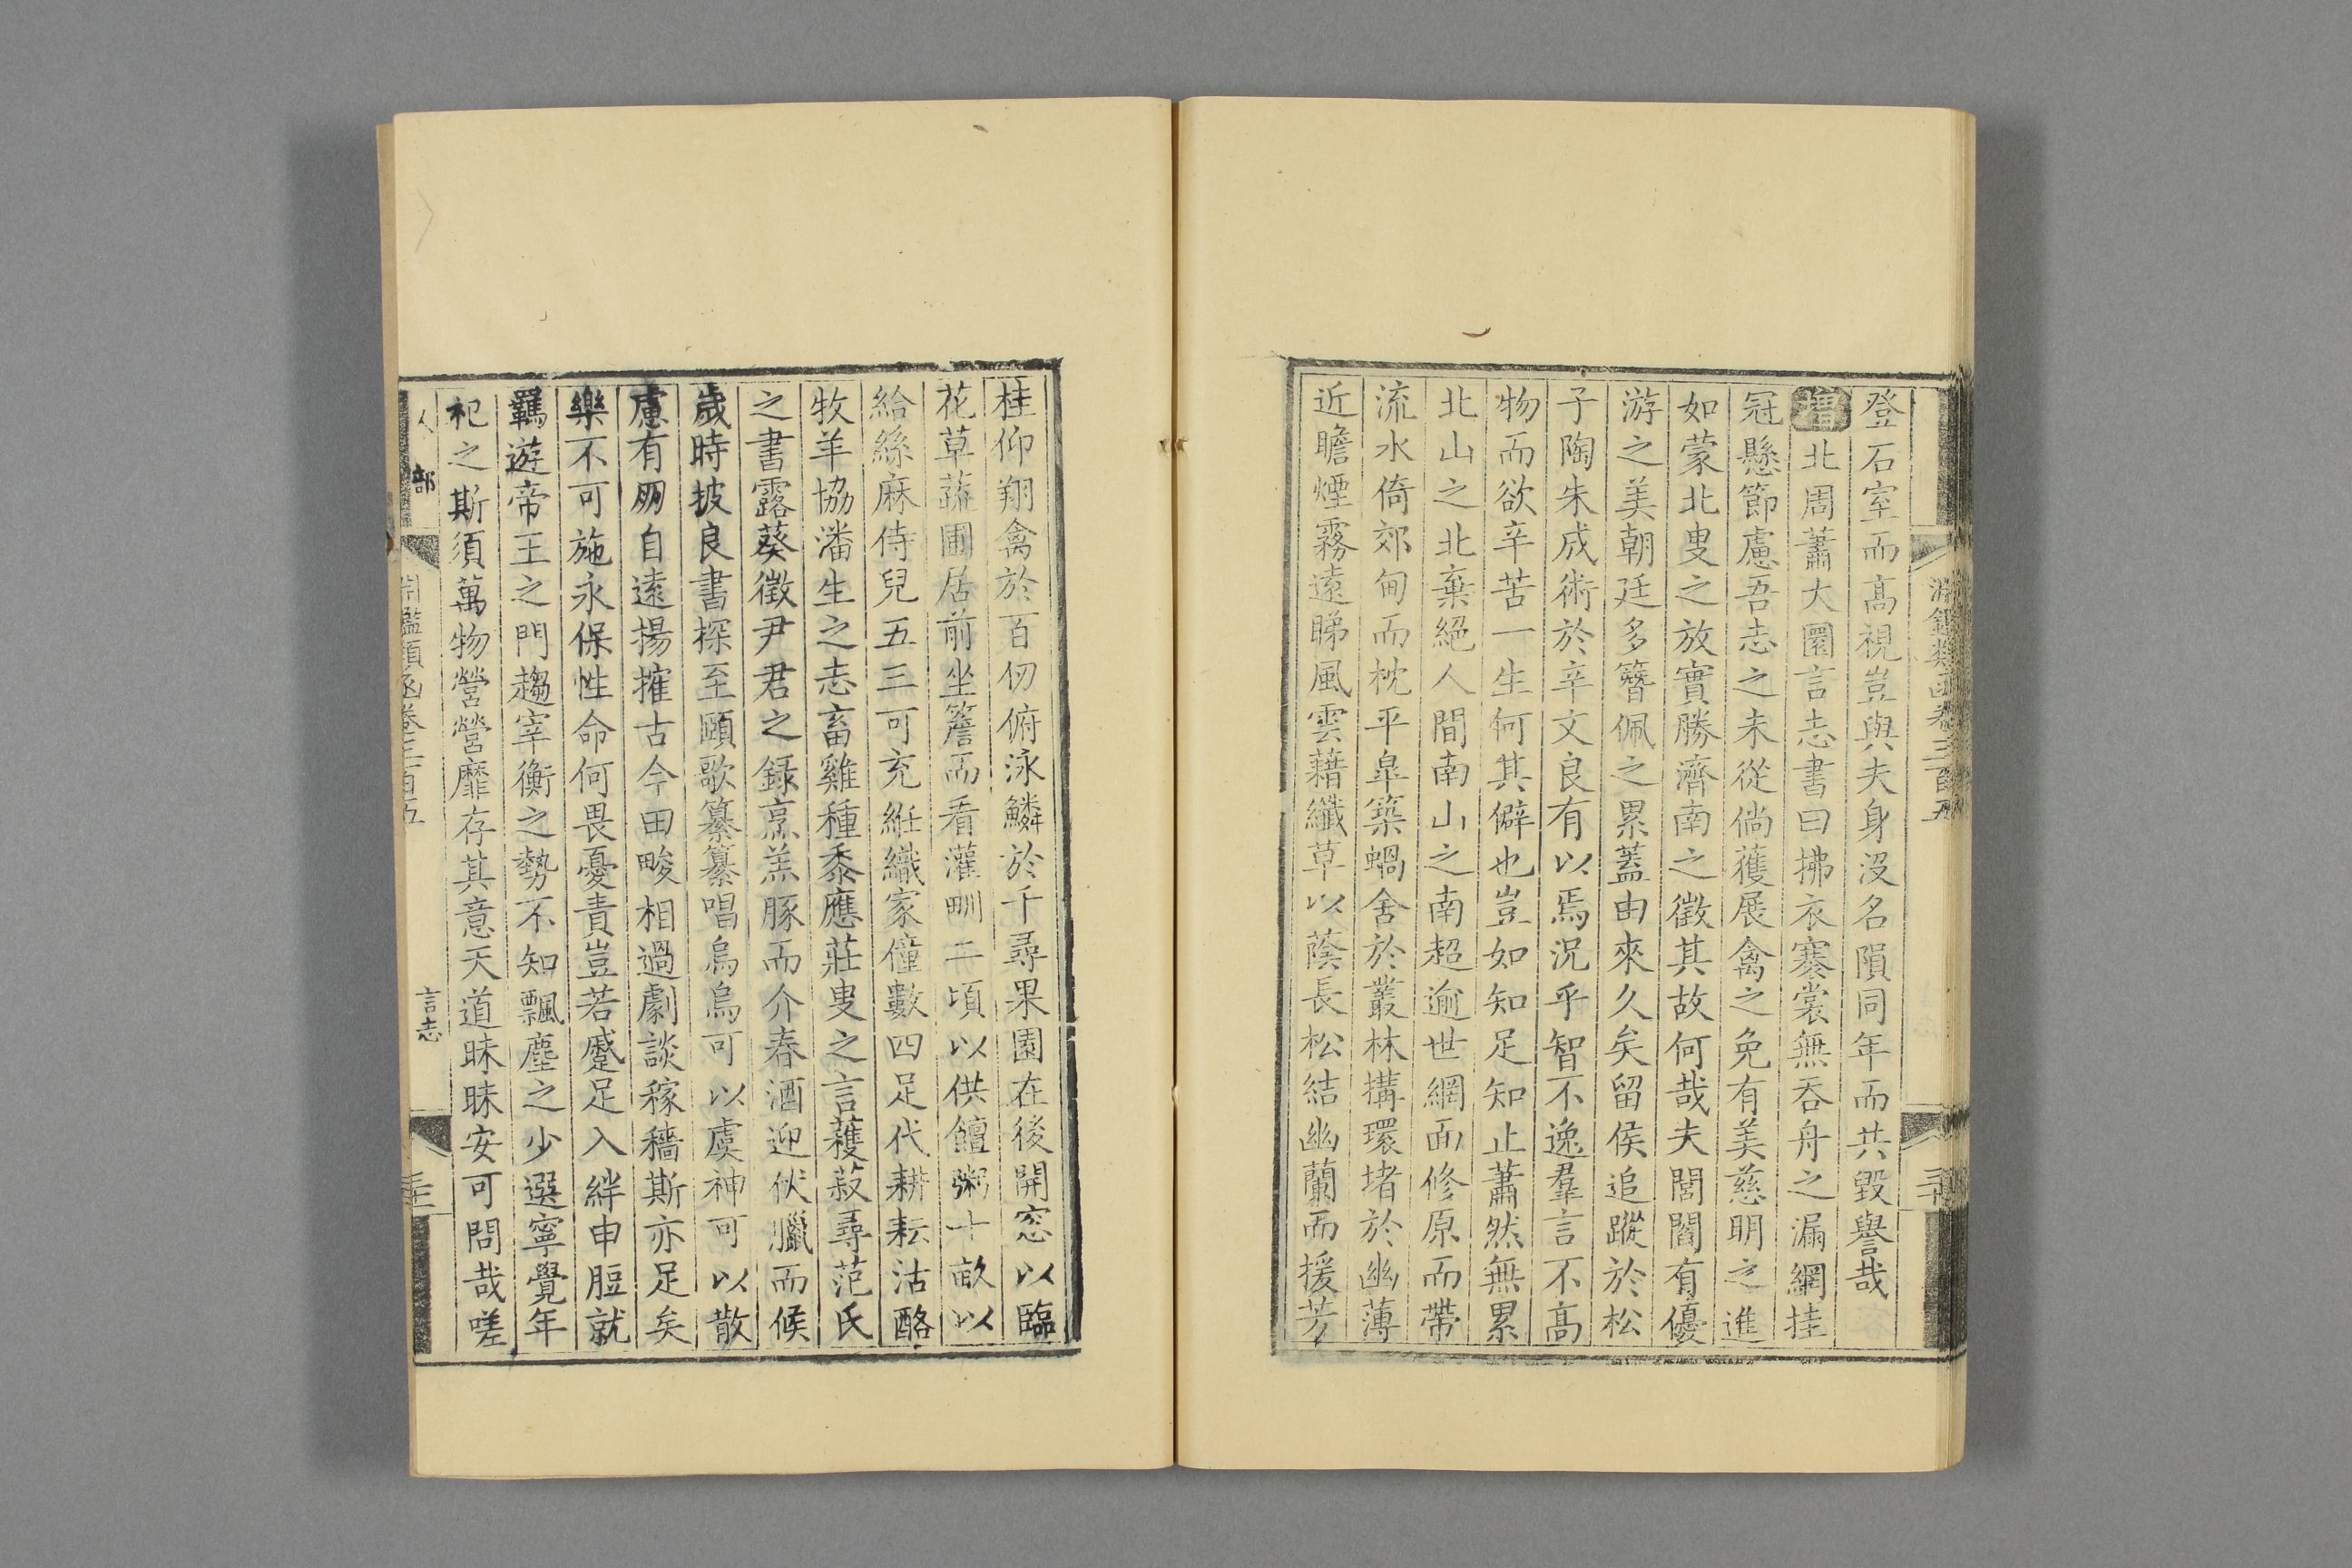 淵鑑類函卷三百五
三十
登石室而高視豈與夫身沒名隕同年而共毀譽哉
增北周蕭大圜言志書曰拂衣褰裳無吞舟之漏網挂
冠懸節慮吾志之未從倘獲展禽之免有美慈明之進
如蒙北叟之放實勝濟南之徵其故何哉夫閭閻有優
游之美朝廷多簪佩之累蓋由來久矣留侯追蹤於松
子陶朱成術於辛文良有以焉況乎智不逸羣言不高
物而欲辛苦一生何其僻也豈如知足知止蕭然無累
北山之北棄絕人間南山之南超逾世網面修原而帶
流水倚郊甸而枕平皐築蝸舍於叢林搆環堵於幽薄
近瞻煙霧遠睇風雲藉纖草以蔭長松結幽蘭而援芳
桂仰翔禽於百仞俯泳鱗於千尋果園在後開窓以臨
花草蔬圃居前坐簷而看灌甽二頃以供饘粥十畝以
給絲麻侍兒五三可充絍織家僮數四足代耕耘沽酪
牧羊協潘生之志畜雞種黍應莊叟之言蒦菽尋范氏
之書露葵徵尹君之錄烹羔豚而介春酒迎伏臘而候
歲時披良書探至頤歌纂纂唱烏烏可以虞神可以散
慮有朋自遠揚搉古今田畯相過劇談稼穡斯亦足矣
樂不可施永保性命何畏憂責豈若蹙足入絆申脰就
羈遊帝王之門趨宰衡之勢不知飄塵之少選寧覺年
祀之斯須萬物營營靡存其意天道昧昧安可問哉嗟
人部
淵鑑類函卷三百五
言志
三十一